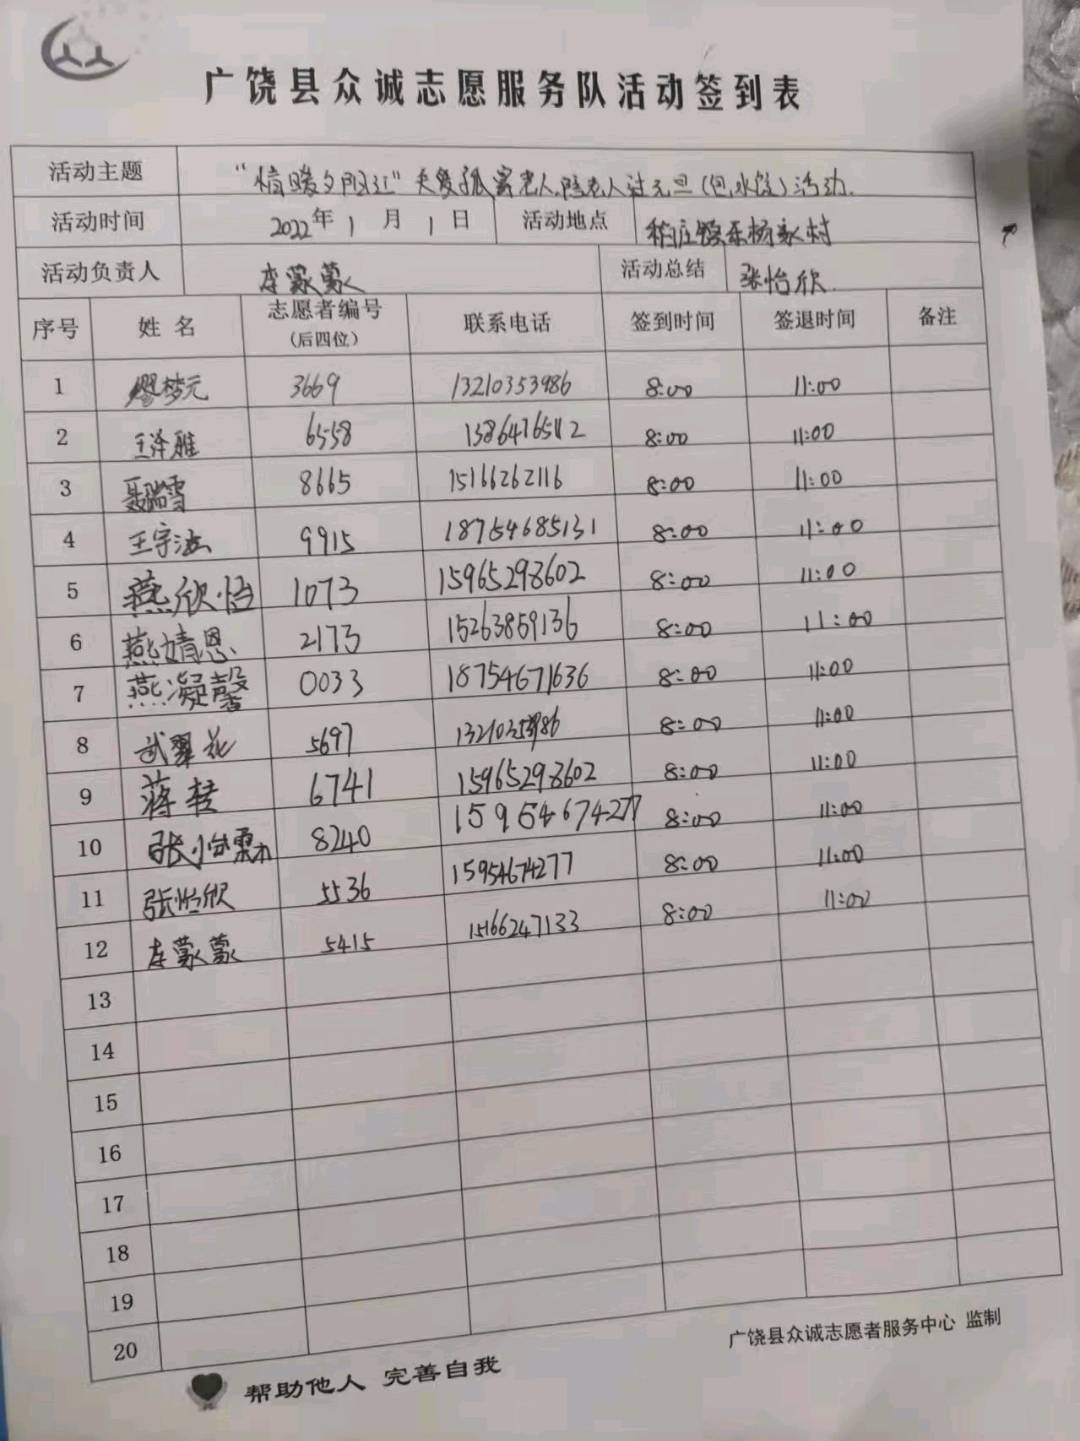 广饶县众诚志愿服务队活动签到表
活动主题 "情暖夕阳红"关爱孤寡老人,陪老人过元旦(包水饺)活动.
活动时间 2022年1月1日 活动地点 稻庄镇东杨家村
活动负责人 李蒙蒙 活动总结 张怡欣
序号 姓名 志愿者编号(后四位) 联系电话 签到时间 签退时间 备注
1 梦元 3669 13210353986 8:00 11:00
2 王泽雅 6558 13864765112 8:00 11:00
3 聂瑞雪 8665 15166262116 8:00 11:00
4 王宇法 9915 18754685131 8:00 11:00
5 燕欣怡 1073 15965298602 8:00 11:00
6 燕婧恩 2173 15263859136 8:00 11:00
7 燕凝馨 0033 18754671636 8:00 11:00
8 武翠花 5697 13210353986 8:00 11:00
9 蒋 6741 15965298602 8:00 11:00
10 张 8240 15954674277 8:00 11:00
11 张怡欣 5536 15954674277 8:00 11:00
12 李蒙蒙 5415 15166247133 8:00 11:00
13
14
15
16
17
18
19
20
广饶县众诚志愿者服务中心 监制
帮助他人 完善自我